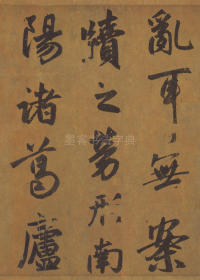 亂耳無案
牘之勞形南
陽諸葛廬
墨客书法字典